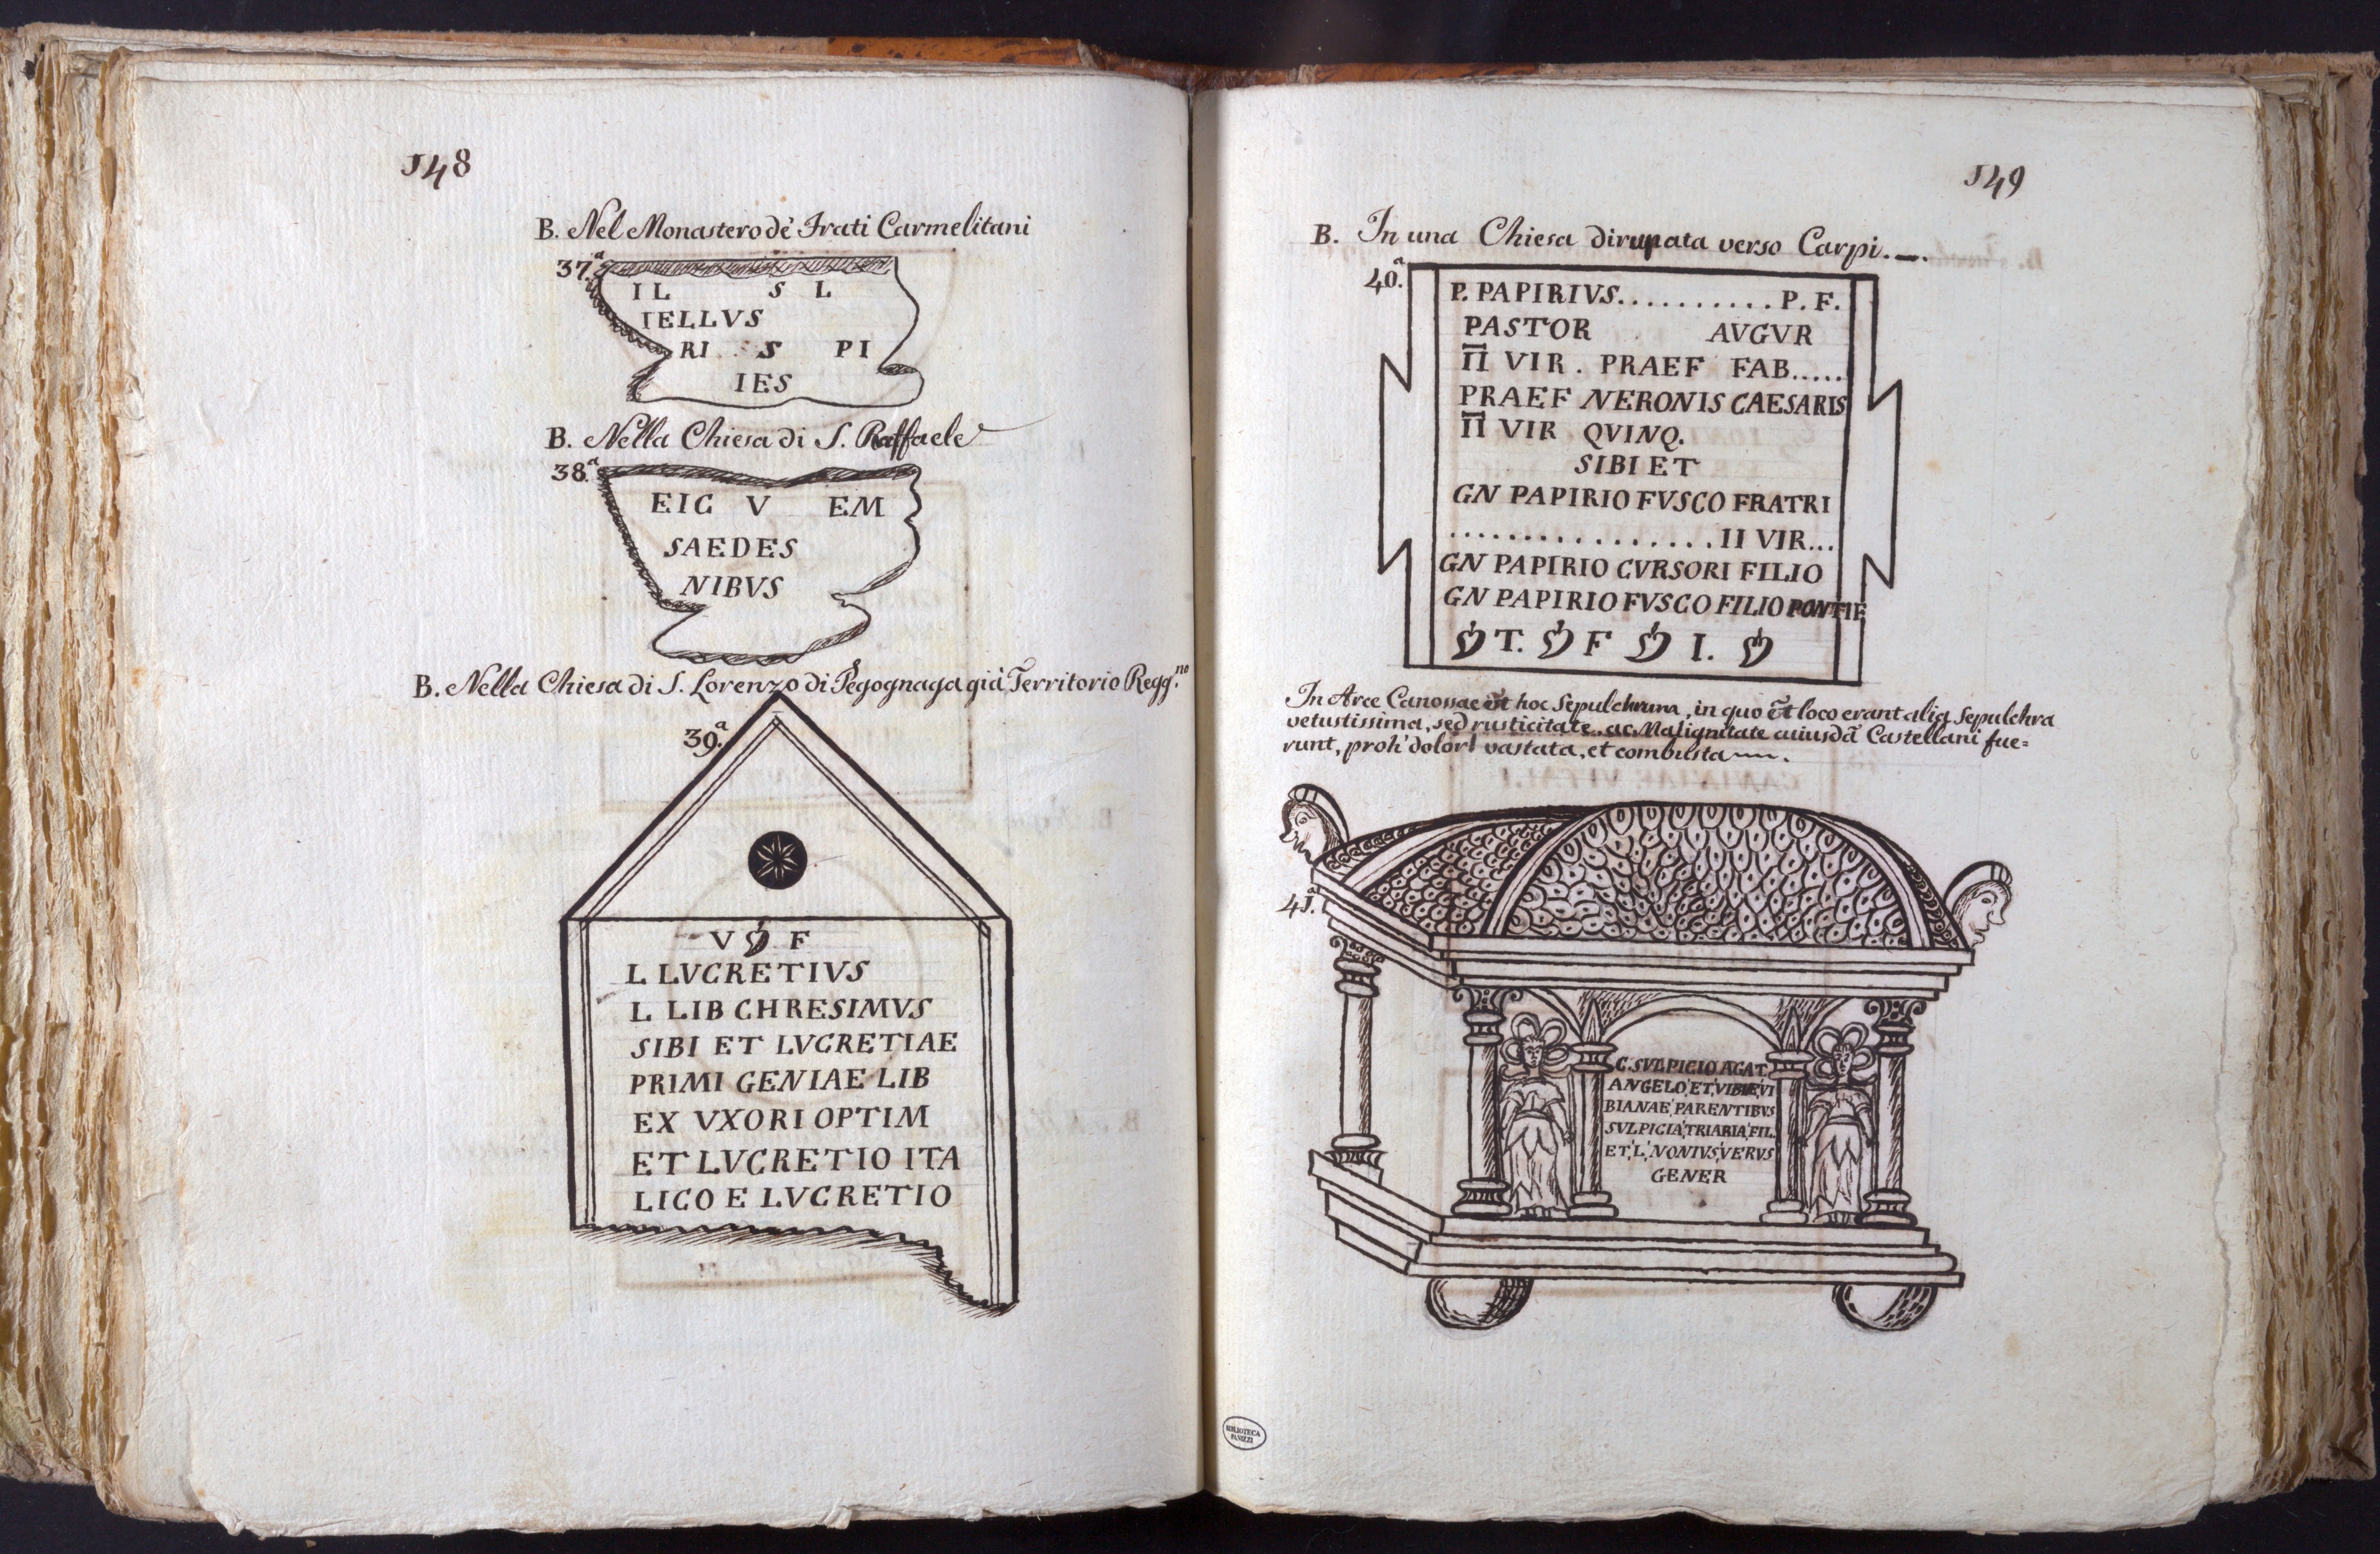 148
B. Nel Monastero de' Frati Carmelitani
37.ª
IL S L
IELLVS
RI S PI
IES
B. Nella Chiesa di S. Raffaele
38.ª
EIC V EM
SAEDES
NIBVS
B. Nella Chiesa di S. Lorenzo di Pegognaga già Territorio Regg.no
39.ª
V F
L LVCRETIVS
L LIB CHRESIMVS
SIBI ET LVCRETIAE
PRIMI GENIAE LIB
EX VXORI OPTIM
ET LVCRETIO ITA
LICO E LVCRETIO
149
B. In una Chiesa dirupata verso Carpi.
40.ª
P. PAPIRIVS..........P. F.
PASTOR AVGVR
II VIR. PRAEF FAB.....
PRAEF NERONIS CAESARIS
II VIR QVINQ.
SIBI ET
GN PAPIRIO FVSCO FRATRI
................II VIR...
GN PAPIRIO CVRSORI FILIO
GN PAPIRIO FVSCO FILIO PONTIF
T. F I.
In Arce Canossae est hoc Sepulchrum, in quo et loco erant alia Sepulchra
vetustissima, sed rusticitate, ac Malignitate cuiusdã Castellani fue=
runt, proh' dolor! vastata, et combusta.
41.ª
C. SVLPICIO AGAT
ANGELO, ET, VIBIE, VI
BIANAE, PARENTIBVS
SVLPICIA, TRIARIA, FIL.
ET, L, NONIVS, VERVS
GENER
BIBLIOTECA
PANIZZI